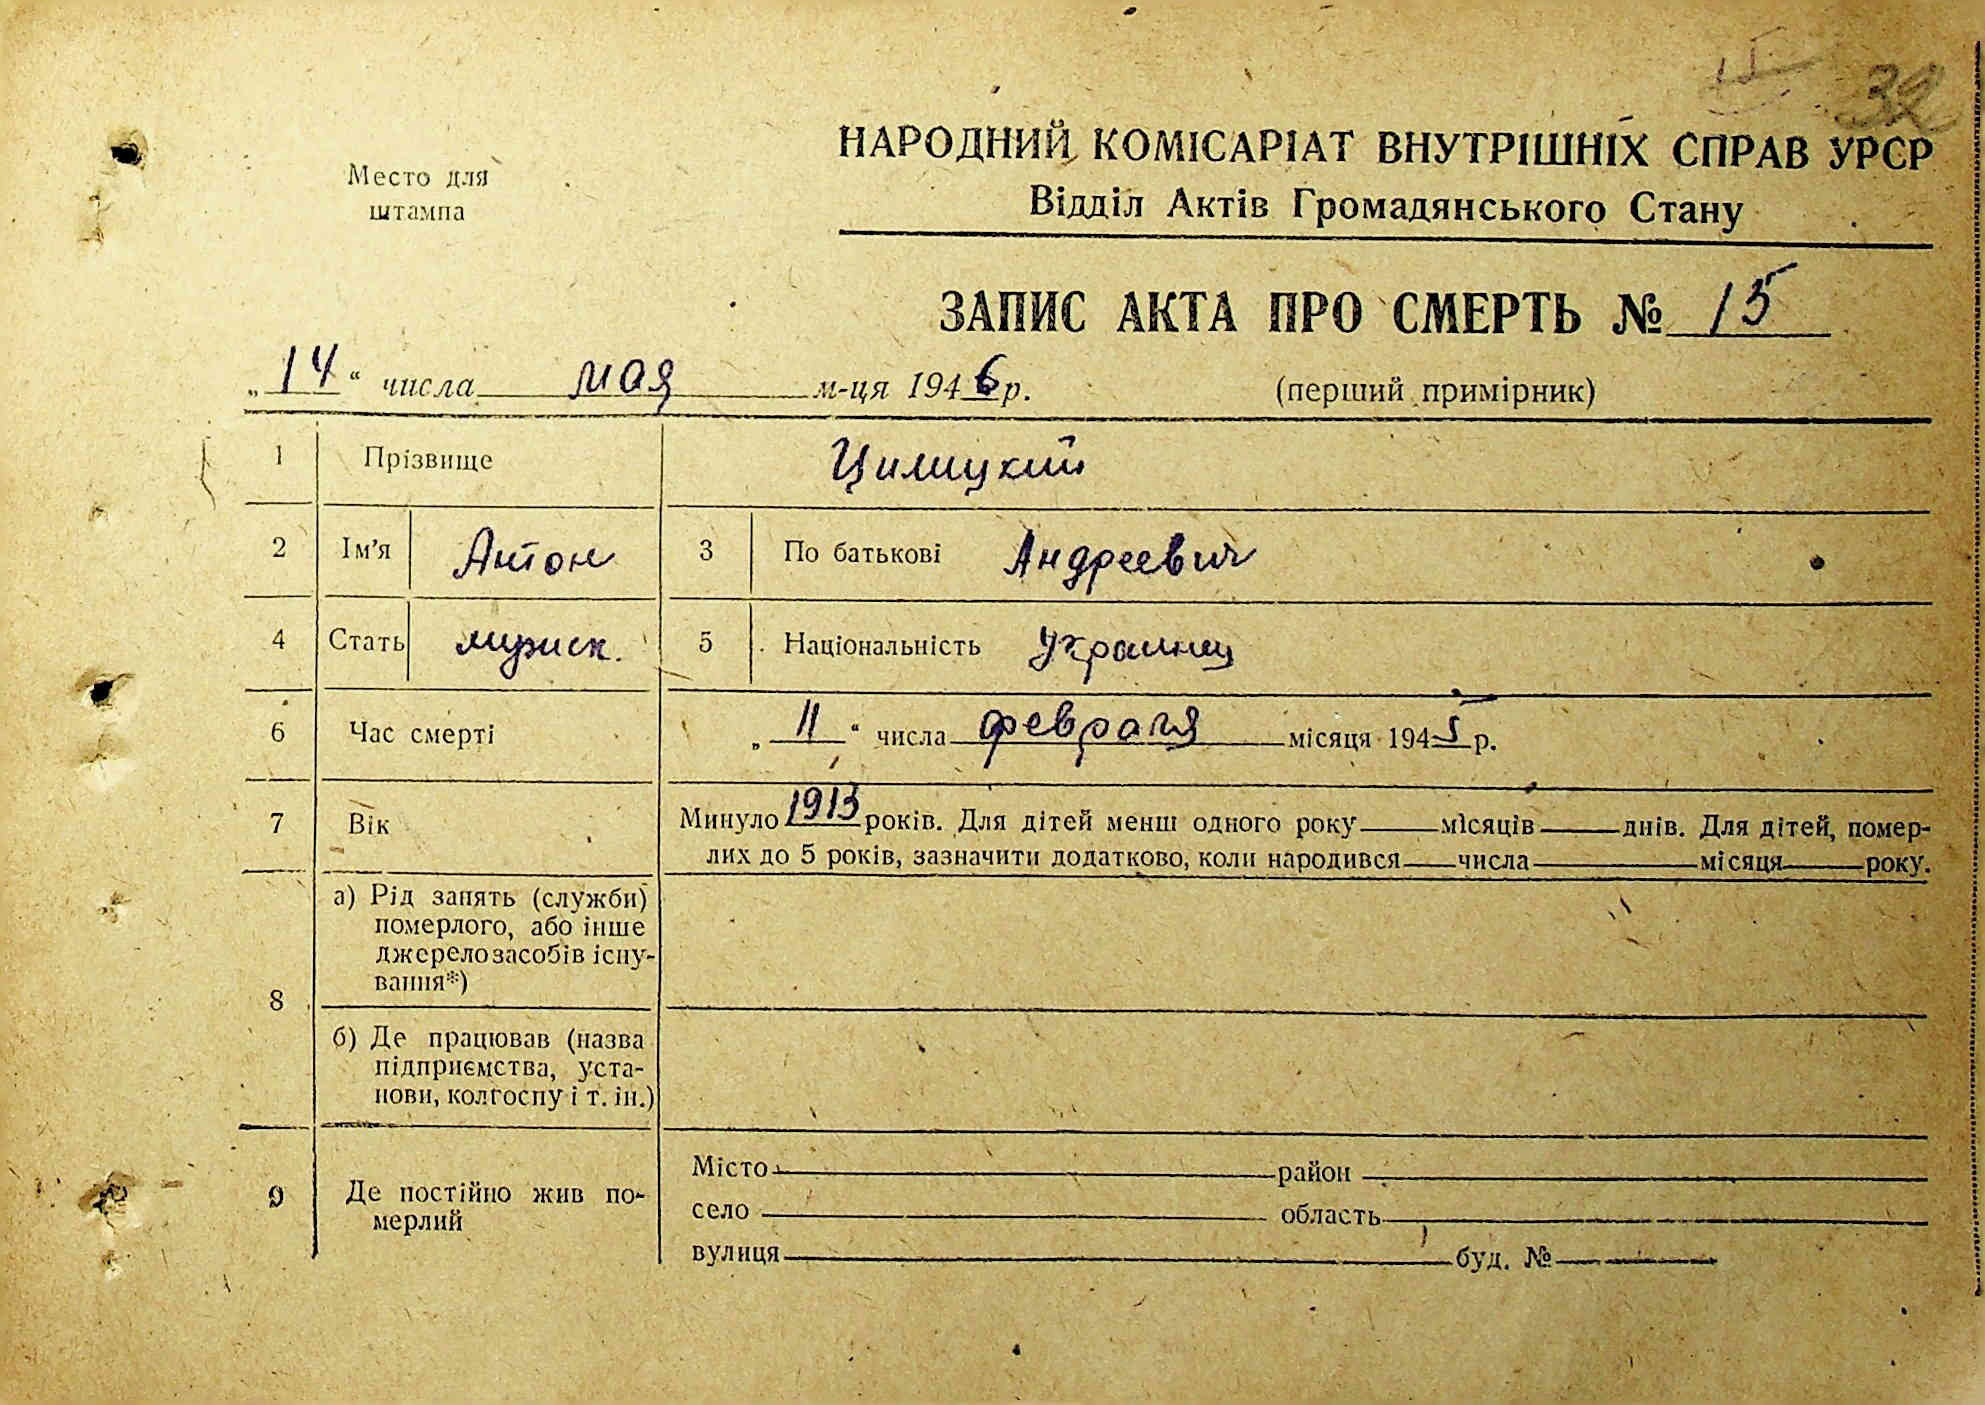 32
Место для
штампа
НАРОДНИЙ КОМІСАРІАТ ВНУТРІШНІХ СПРАВ УРСР
Відділ Актів Громадянського Стану
ЗАПИС АКТА ПРО СМЕРТЬ № 15
„14“ числа мая м-ця 1946 р.
(перший примірник)
1 Прізвище Цилицкий
2 Ім'я Антон 3 По батькові Андреевич
4 Стать мужск. 5 Національність Украинец
6 Час смерті „11“ числа февраля місяця 1945 р.
7 Вік Минуло 1913 років. Для дітей менш одного року місяців днів. Для дітей, помер-
лих до 5 років, зазначити додатково, коли народився числа місяця року.
8
а) Рід занять (служби)
померлого, або інше
джерело засобів існу-
вання*)
б) Де працював (назва
підприємства, уста-
нови, колгоспу і т. ін.)
9 Де постійно жив по-
мерлий
Місто район
село область
вулиця буд. №